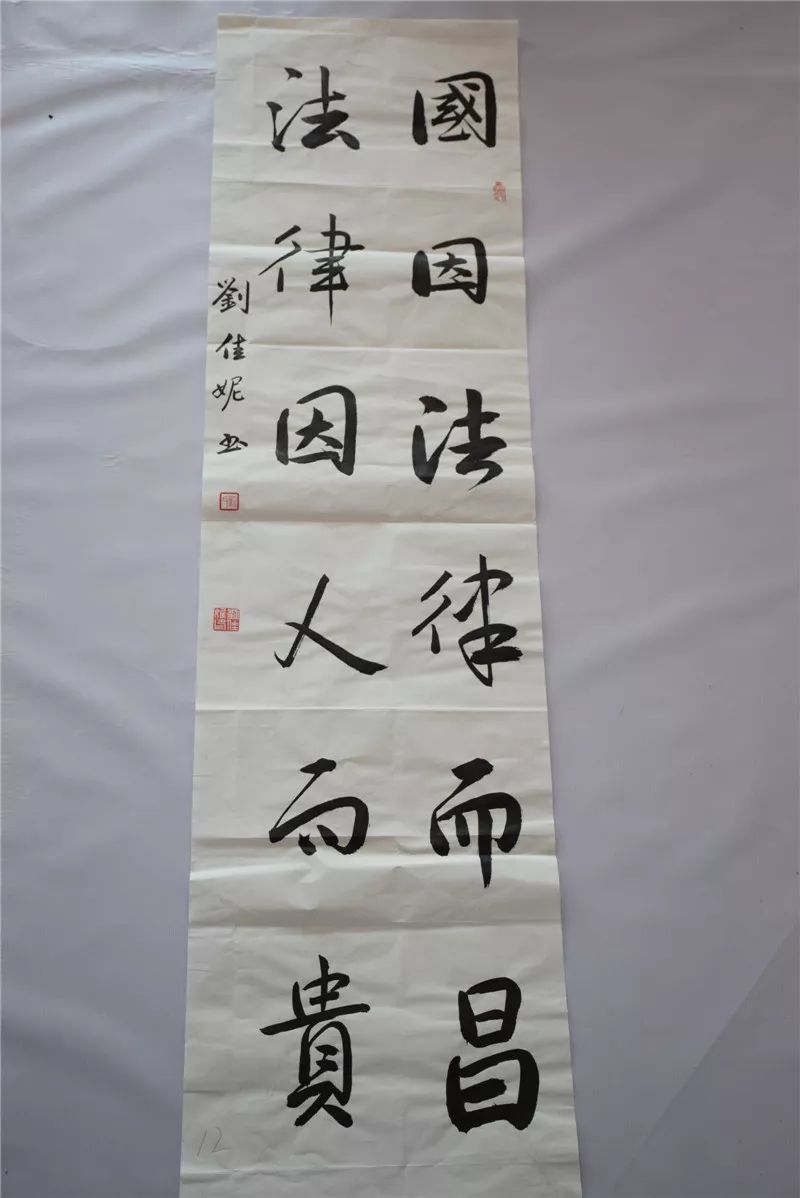 國因法律而昌
法律因人而貴
劉佳妮书
12